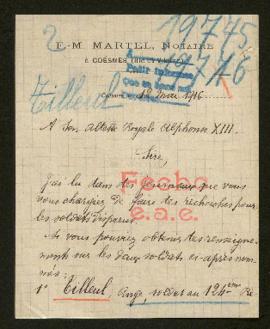 19745
19746
F.-M. MARTEL, NOTAIRE
A COËSMES (ILLE-ET-VILAINE)
Tilleul
Coësmes, 12 Mai 1916
A Son Altesse Royale Alphonse XIII.
Sire,
J'ai lu dans les journaux que vous
vous chargez de faire des recherches pour
les soldats disparus.
Fecha
e.a.e.
Si vous pouviez obtenir des renseigne-
ments sur les deux soldats ci-après nom-
més:
1° Tilleul, Ange, soldat au 124ème Ré